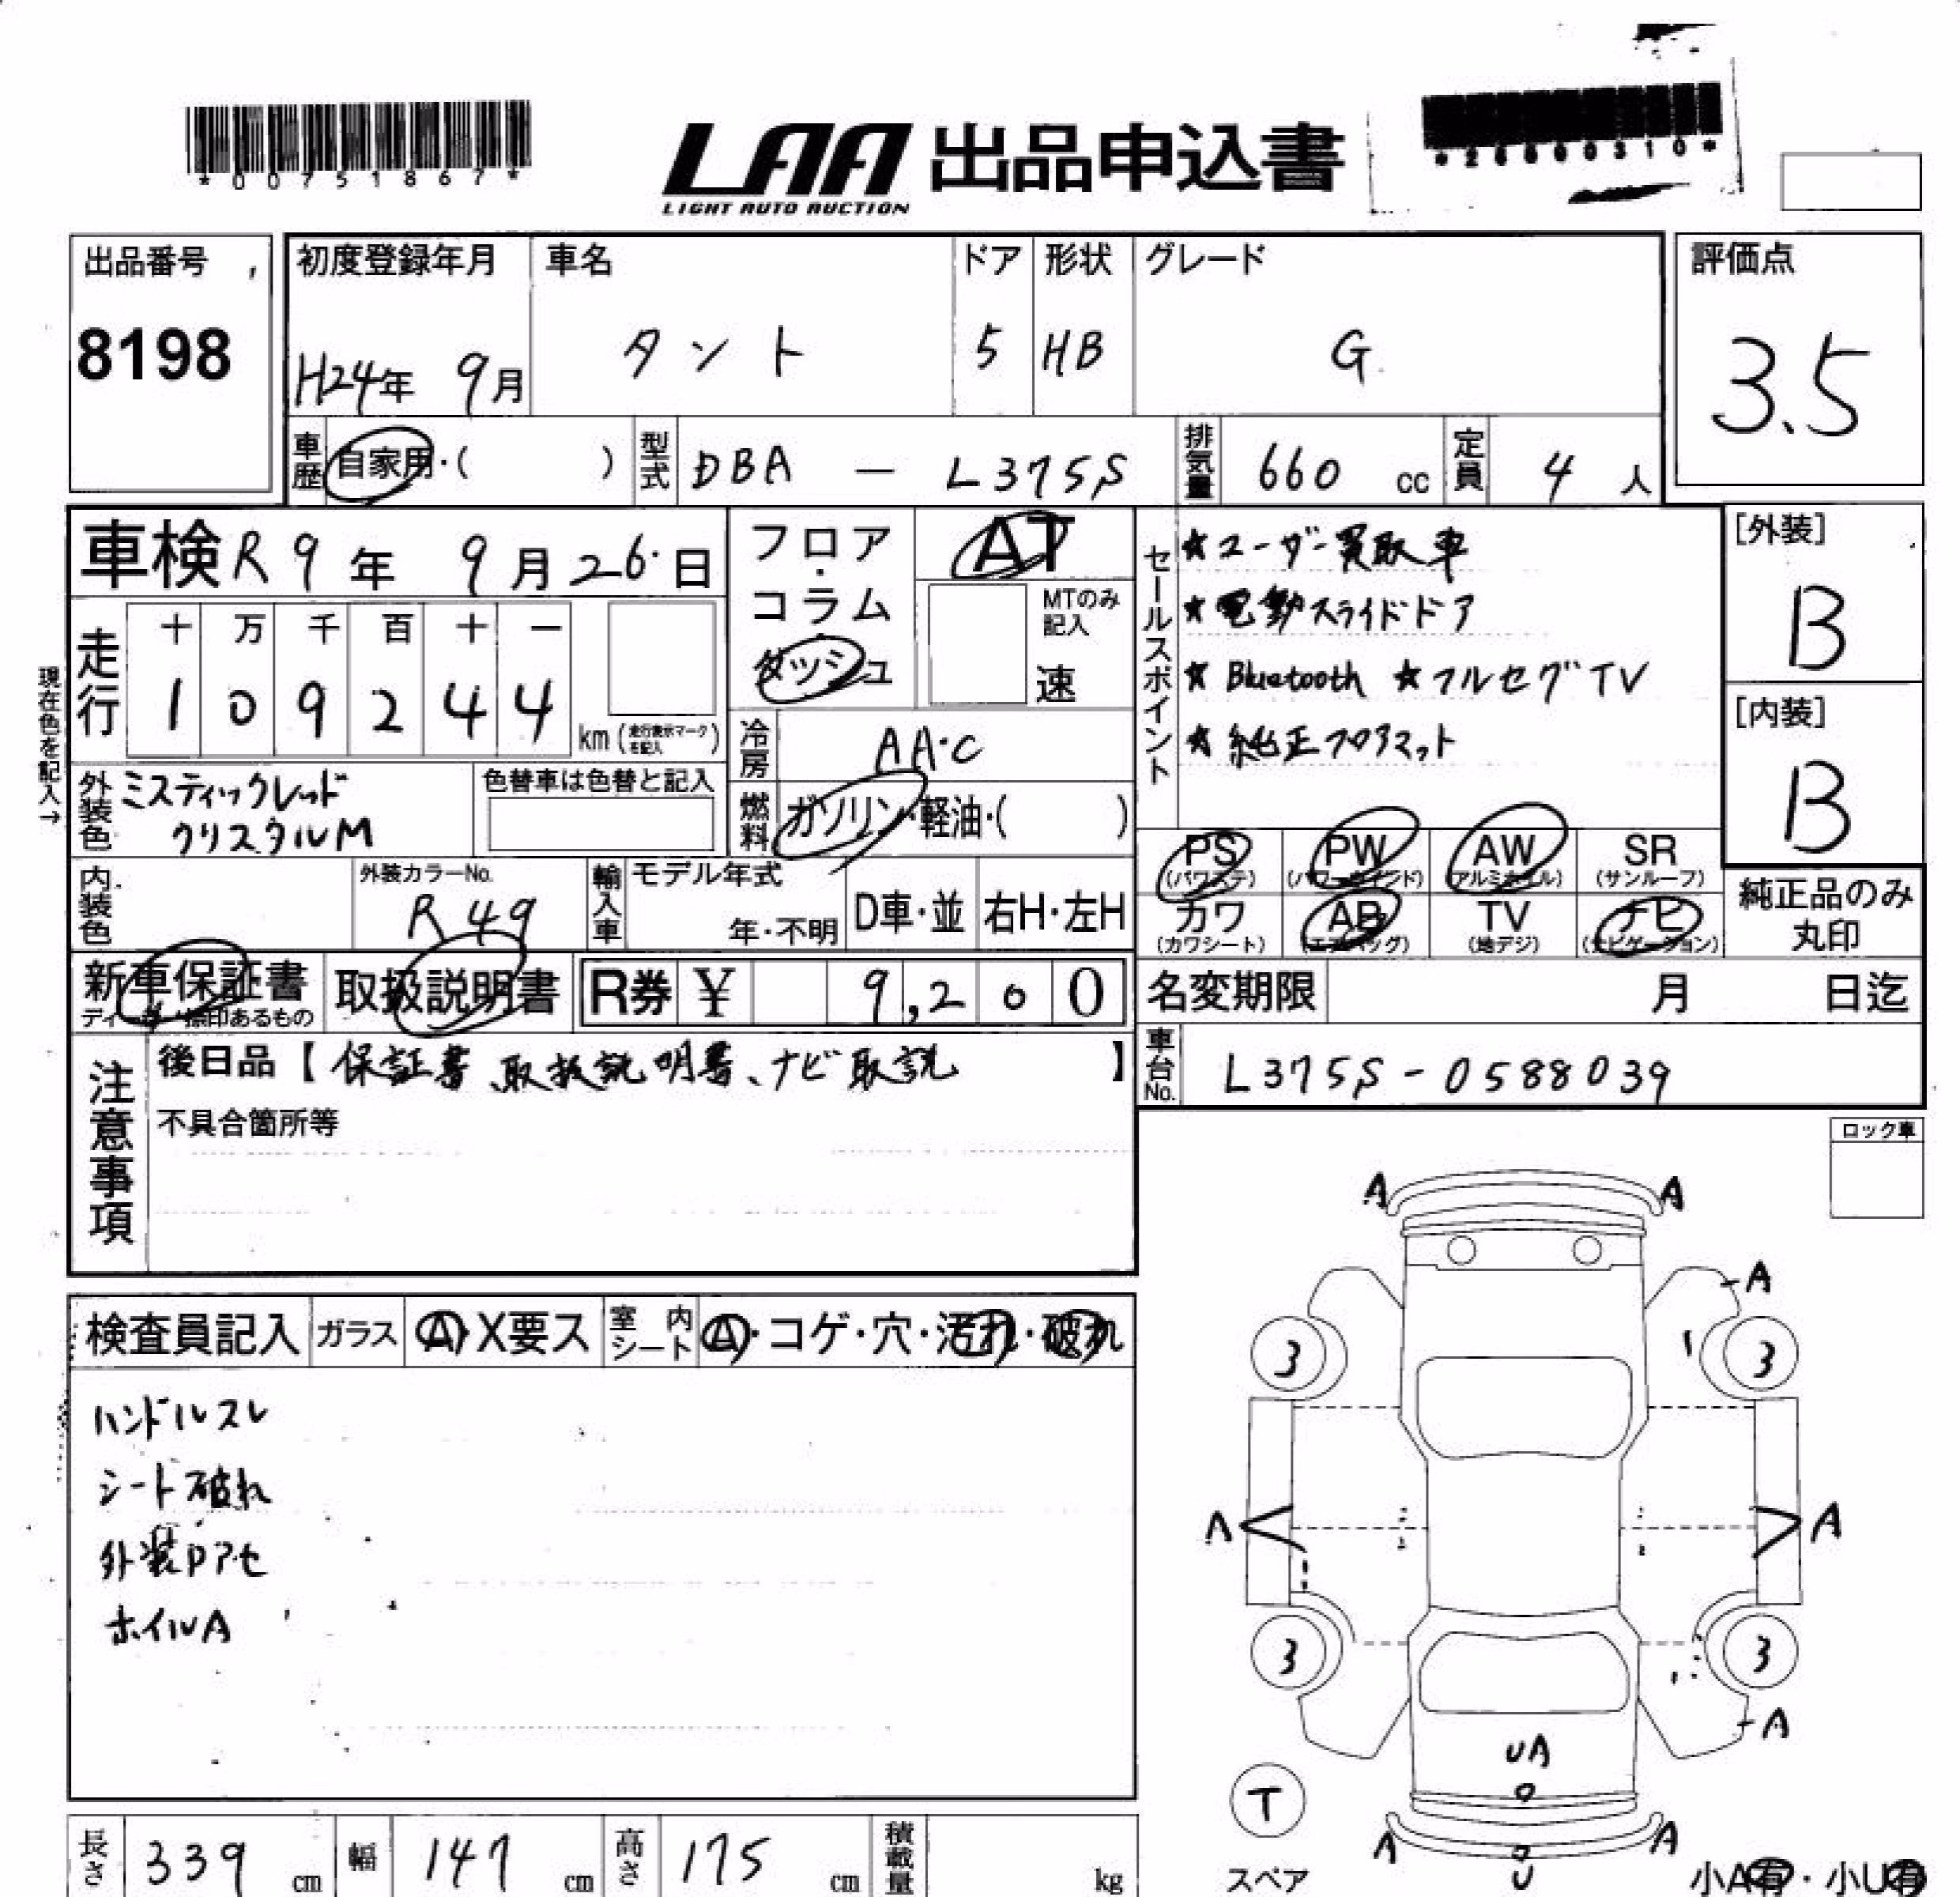 *00751867*
LAA 出品申込書
LIGHT AUTO AUCTION
出品番号
8198
初度登録年月
H24年 9月
車名
タント
ドア
5
形状
HB
グレード
G
評価点
3.5
車歴 自家用・( )
型式 DBA - L375S
排気量 660 cc
定員 4 人
車検 R9年 9月26日
フロア・コラム・ダッシュ
AT
MTのみ記入
速
走行
十 万 千 百 十 一
1 0 9 2 4 4
km (走行表示マークを記入)
現在色を記入→
セールスポイント
★ユーザー買取車
★電動スライドドア
★Bluetooth ★フルセグTV
★純正フロアマット
[外装]
B
[内装]
B
冷房 AA・C
外装色 ミスティックレッド
クリスタルM
色替車は色替と記入
燃料 ガソリン・軽油・( )
PS (パワステ)
PW (パワーウインド)
AW (アルミホイル)
SR (サンルーフ)
カワ (カワシート)
AB (エアバッグ)
TV (地デジ)
ナビ (ナビゲーション)
純正品のみ
丸印
内装色
外装カラーNo.
R49
輸入車
モデル年式
年・不明
D車・並
右H・左H
新車保証書
取扱説明書
R券 ¥ 9,200
名変期限 月 日迄
車台No. L375S-0588039
注意事項
後日品【保証書、取扱説明書、ナビ取説】
不具合箇所等
ロック車
検査員記入
ガラス
A・X要ス
室内シート
A・コゲ・穴・汚れ・破れ
ハンドルスレ
シート破れ
外装Pアセ
ホイルA
A A
A
3 3
A A
3 3
A
UA
T
A A
U
スペア
小A有・小U有
長さ 339 cm
幅 147 cm
高さ 175 cm
積載量 kg